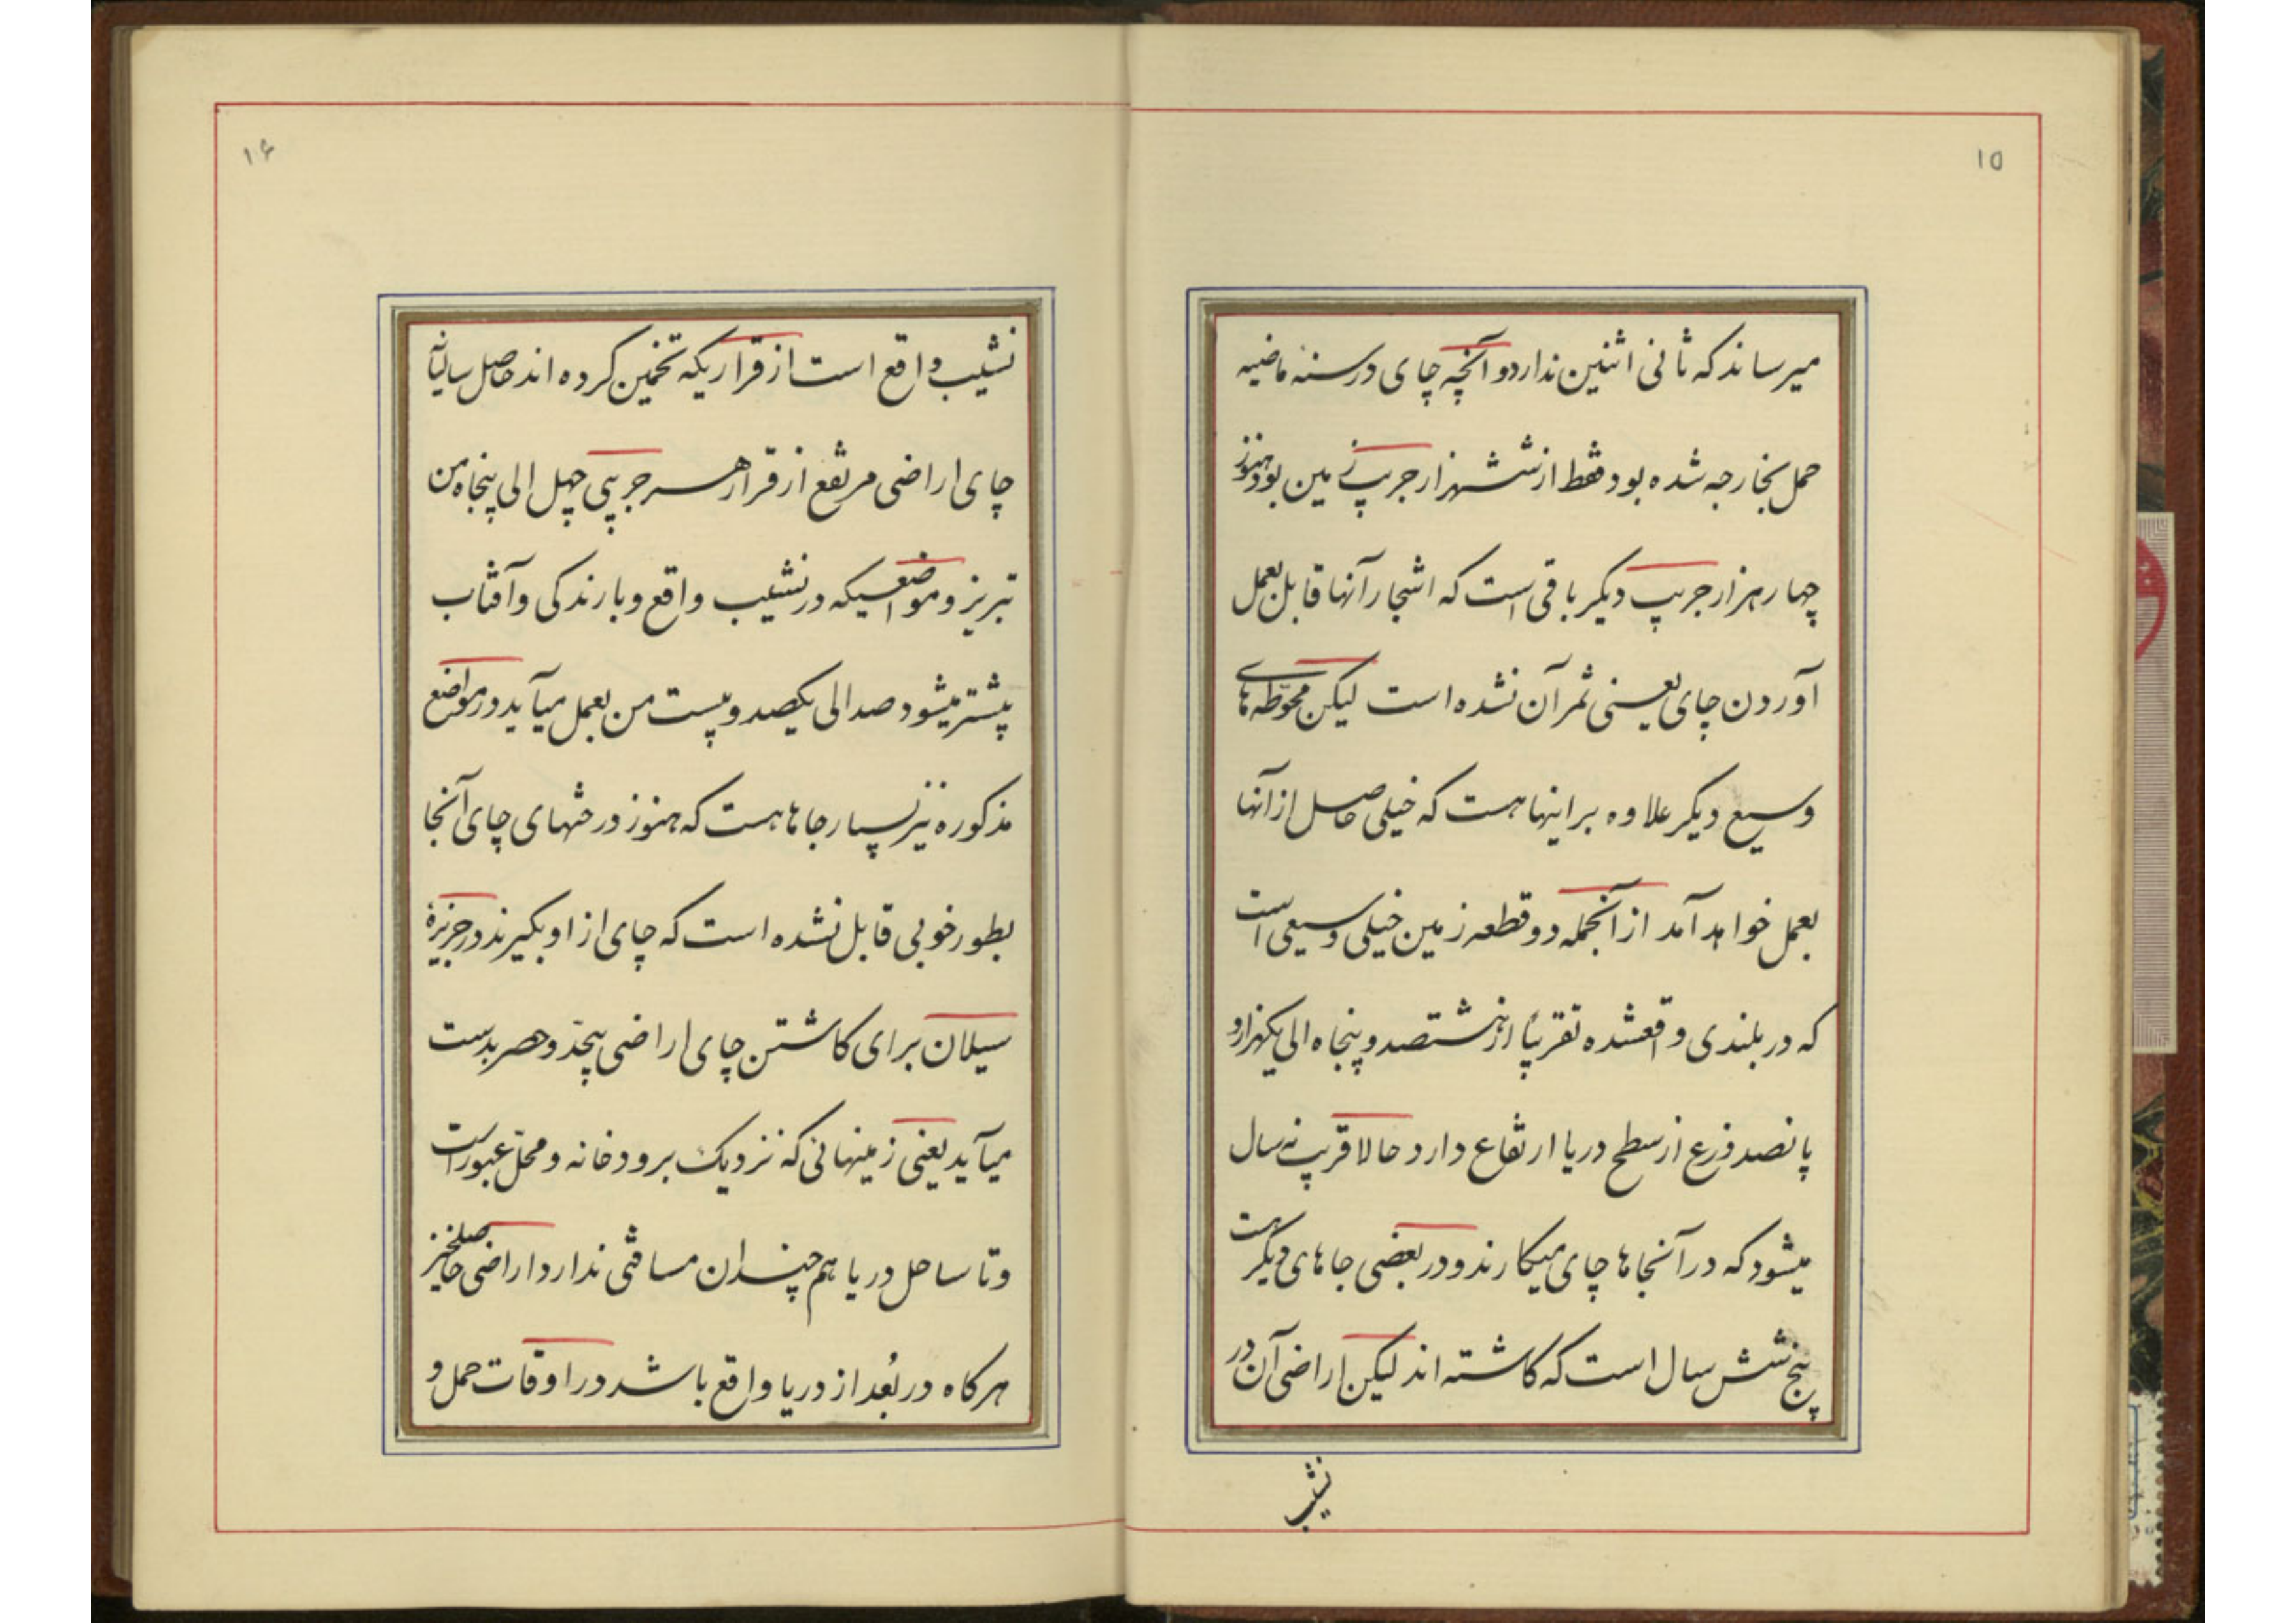 ۱۵
میرساند که ثانی اثنین ندارد و آنچه چای در سنهٔ ماضیه
حمل بخارجه شده بود فقط از ششهزار جریب زمین بود و هنوز
چهار هزار جریب دیگر باقی است که اشجار آنها قابل بعمل
آوردن چای یعنی ثمر آن نشده است لیکن محوّطه‌های
وسیع دیگر علاوه بر اینها هست که خیلی حاصل از آنها
بعمل خواهد آمد از آنجمله دو قطعه زمین خیلی وسیعی است
که در بلندی واقعشده تقریباً از هشتصد و پنجاه الی یکهزار و
پانصد ذرع از سطح دریا ارتفاع دارد حالا قریب نه سال
میشود که در آنجاها چای میکارند و در بعضی جاهای دیگر هست
پنج شش سال است که کاشته اند لیکن اراضی آن در
نشیب
۱۶
نشیب واقع است از قراریکه تخمین کرده اند حاصل سالیانهٔ
چای اراضی مرتفع از قرار هر جریبی چهل الی پنجاه من
تبریز و مواضعیکه در نشیب واقع و بارندگی و آفتاب
بیشتر میشود صد الی یکصد و بیست من بعمل میآید و در مواضع
مذکوره نیز بسیار جاها هست که هنوز درختهای چای آنجا
بطور خوبی قابل نشده است که چای از او بگیرند در جزیرهٔ
سیلان برای کاشتن چای اراضی بیحدّ و حصر بدست
میآید یعنی زمینهائی که نزدیک برودخانه و محلّ عبور است
و تا ساحل دریا هم چندان مسافتی ندارد اراضی حاصلخیز
هرکاه در بُعد از دریا واقع باشد در اوقات حمل و